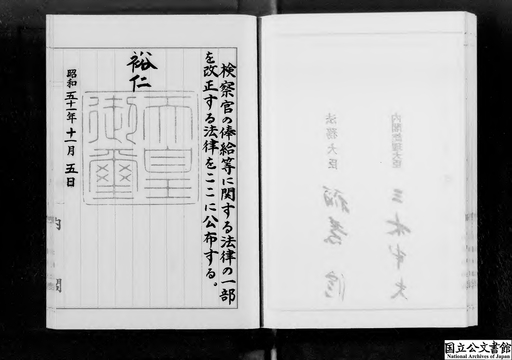 検察官の俸給等に関する法律の一部
を改正する法律をここに公布する。
裕仁
天皇
御璽
昭和五十一年十一月五日
内閣
内閣総理大臣
法務大臣
国立公文書館
National Archives of Japan